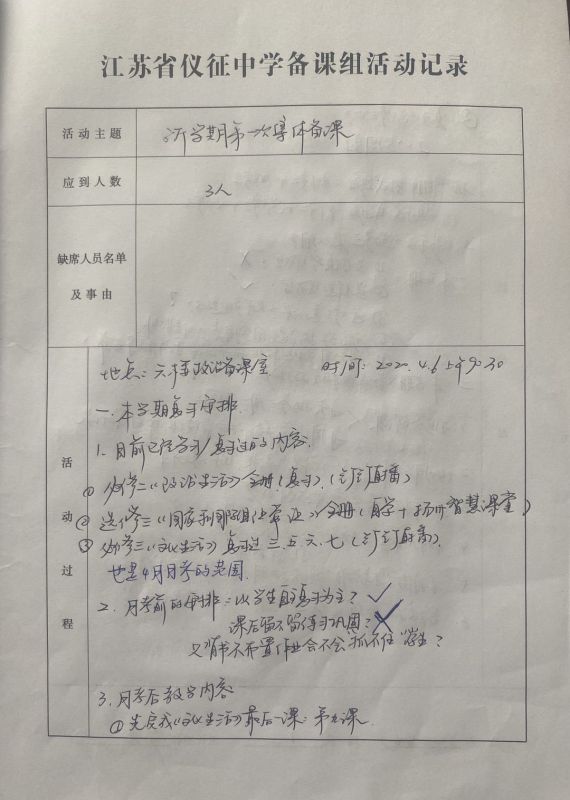 江苏省仪征中学备课组活动记录
活动主题
新学期第一次集体备课
应到人数
3人
缺席人员名单
及事由
活动过程
地点：六楼政治备课室 时间：2020.4.6 上午9:30
一.本学期复习安排.
1.目前已经学习/复习过的内容.
① 必修二《政治生活》全册(复习).(钉钉直播)
② 选修三《国家和国际组织常识》全册(自学+扬州智慧课堂)
③ 必修三《文化生活》复习过 三.五.六.七(钉钉直播).
也是4月月考的范围.
2.月考前的安排：以学生自主复习为主？✓
课后要不要留练习巩固？✗
只背书不布置作业会不会"抓不住"学生？
3.月考后教学内容
①先完成《文化生活》最后一课：第九课.